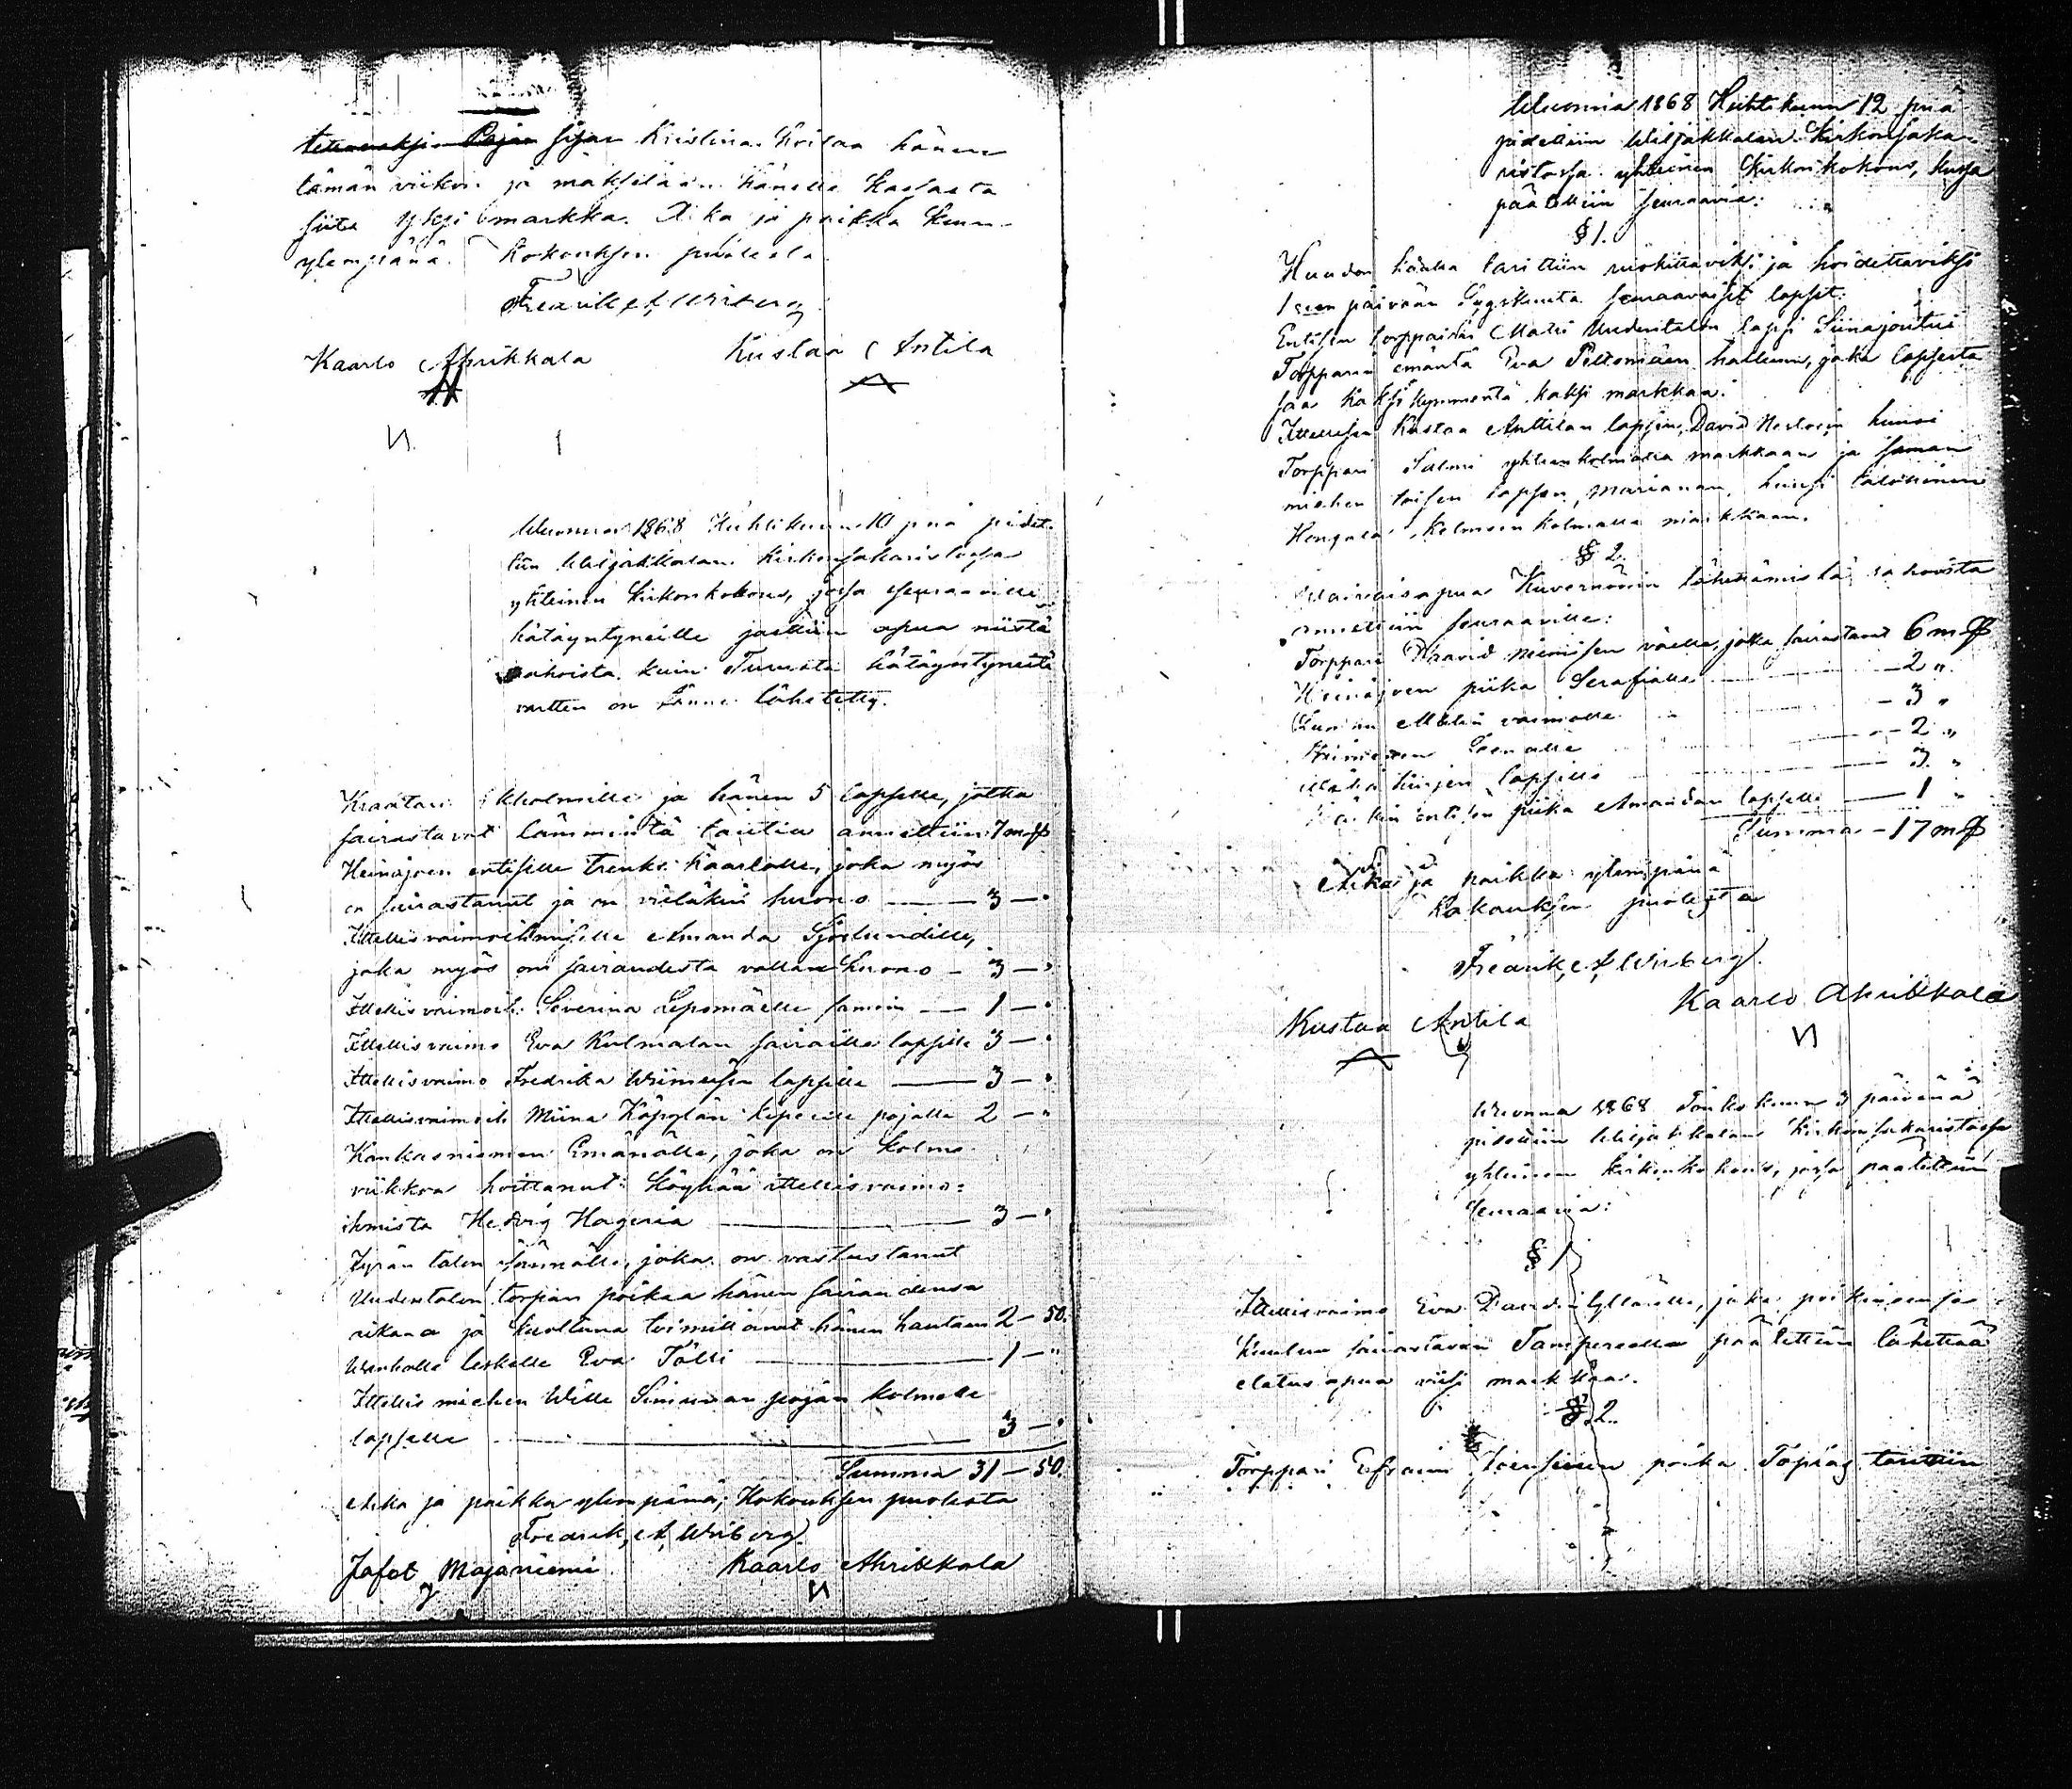 Kristina hänen
tämän viikon ja maksetaan hänelle Kassasta
siitä yksi markka. Aika ja paikka kuin
ylempänä. Kokouksen puolesta
Fredrik A, Wiberg
Kaarlo Ahrikkala Kustaa Antila
Wuonna 1868 Huhtikuun 10 p:nä pidet-
tiin Wiljakkalan Kirkonsakaristossa
yhteinen Kirkonkokous, jossa seuraaville
hätäyntyneille jaettiin apua niistä
rahoista kuin Turusta hätäyntyneitä
vartten on tänne lähetetty.
Kraatari Ekholmille ja hänen 5 lapselle, jotka
sairastavat lämmintä tautia annettiin 7 m
Heinäjoen entiselle Trenki Kaarlolle, joka myös
on sairastanut ja on vieläkin huono — 3 — "
Ittellisvaimoihmiselle Amanda Sjöslundille,
joka myös on sairaudesta vallan huono — 3 — "
Ittellisvaimoih. Severina Lepomäelle samoin — 1 — "
Ittellisvaimo Eva Kulmalan sairaille lapsille 3 — "
Ittellisvaimo Fredrika lapsille — 3 — "
Ittellisvaimoih Miina Käpylän kipeälle pojalle 2 — "
Kankasniemen Emänälle, joka on kolme
viikkoa hoittanut köyhää ittellisvaimo:
ihmistä Hedvig Hageria — 3 — "
talon joka on vastustanut
Uudentalon torpan poikaa hänen sairaudensa
aikana ja kuoltuna toimittanut hänen hautaan 2 — 50.
Wanhalle leskelle Eva Tölli — 1 — "
Ittellis miehen Wille pojan kolmelle
lapselle — 3 — "
Summa 31 — 50.
Aika ja paikka ylempänä; Kokouksen puolesta
Fredrik, A, Wiberg
Jafet Majaniemi Kaarlo Ahrikkala
Wuonna 1868 Huhtikuun 12 p:nä
pidettiin Wiljakkalan Kirkonsaka-
ristossa yhteinen Kirkonkokous, kussa
päätettiin seuraavia:
§ 1.
Huudon kautta tarittiin ruokittaviksi ja hoidettaviksi
1seen päivään Syyskuuta seuraavaiset lapset:
Entisen torpparin Matti Uudentalon lapsi Siina joutui
Torpparin emäntä Eva Peltomäen haltuun, joka lapsesta
saa kaksikymmentä kaksi markkaa.
Ittellisen Kustaa Anttilan lapsen, David huusi
Torppari Salmi yhteenkolmatta markkaan ja saman
miehen toisen lapsen, Marianan, huusi
Hongala, kolmeenkolmatta markkaan.
§ 2.
Waivaisapua Kuvernöörin lähettämistä rahoista
annettiin seuraaville:
Torppari Daavid Niemisen väelle, jotka sairastavat 6 m
Heinäjoen piika Serafialle — 2 "
vaimolle — 3 "
Leenalle — 2 "
lapsille — 3 "
entisen piika Amandan lapselle — 1 "
Summa — 17 m
Aika ja paikka ylempänä
Kokouksen puolesta
Fredrik, A, Wiberg.
Kustaa Antila Kaarlo Ahrikkala
Wuonna 1868 Toukokuun 3 päivänä
pidettiin Wiljakkalan Kirkonsakaristossa
yhteinen kirkonkokous, jossa päätettiin
seuraavia:
§ 1
Ittellisvaimo Eva joka
sairastavan Tampereella päätettiin lähettää
elatusapua viisi markkaa.
§. 2.
Torppari Efraim poika Topias tarittiin